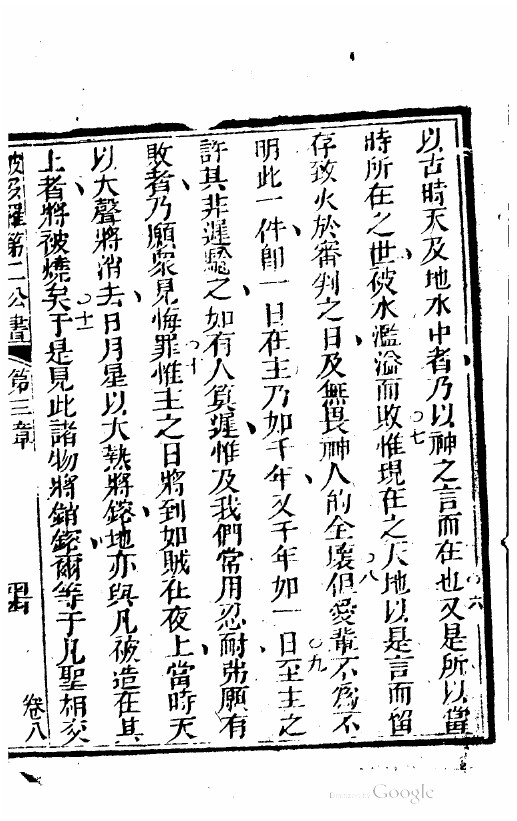 以古時天及地水中者乃以神之言而在也○六又是所以當
時所在之世被水濫溢而敗○七惟現在之天地以是言而留
存致火於審判之日及無畏神人的全壞○八但愛輩不為不
明此一件即一日在主乃如千年又千年如一日○九至主之
許其非遲騖之如有人算遲惟及我們常用忍耐弗願有
敗者乃願眾見悔罪○十惟主之日將到如賊在夜上當時天
以大聲將消去日月星以大熱將鎔地亦與凡被造在其
上者將被燒矣○十一于是見此諸物將銷鎔爾等于凡聖相交
彼多羅第二公書 第三章 卷八
Google